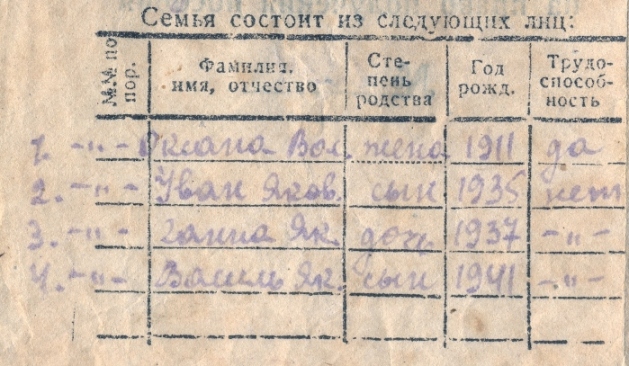 Семья состоит из следующих лиц:
№№ по пор. Фамилия, имя, отчество Сте-пень родства Год рожд. Трудо-способ-ность
1. -"- Оксана Вас. жена 1911 да
2. -"- Иван Яков. сын 1935 нет
3. -"- Ганна Як. дочь 1937 -"-
4. -"- Василь Як. сын 1941 -"-